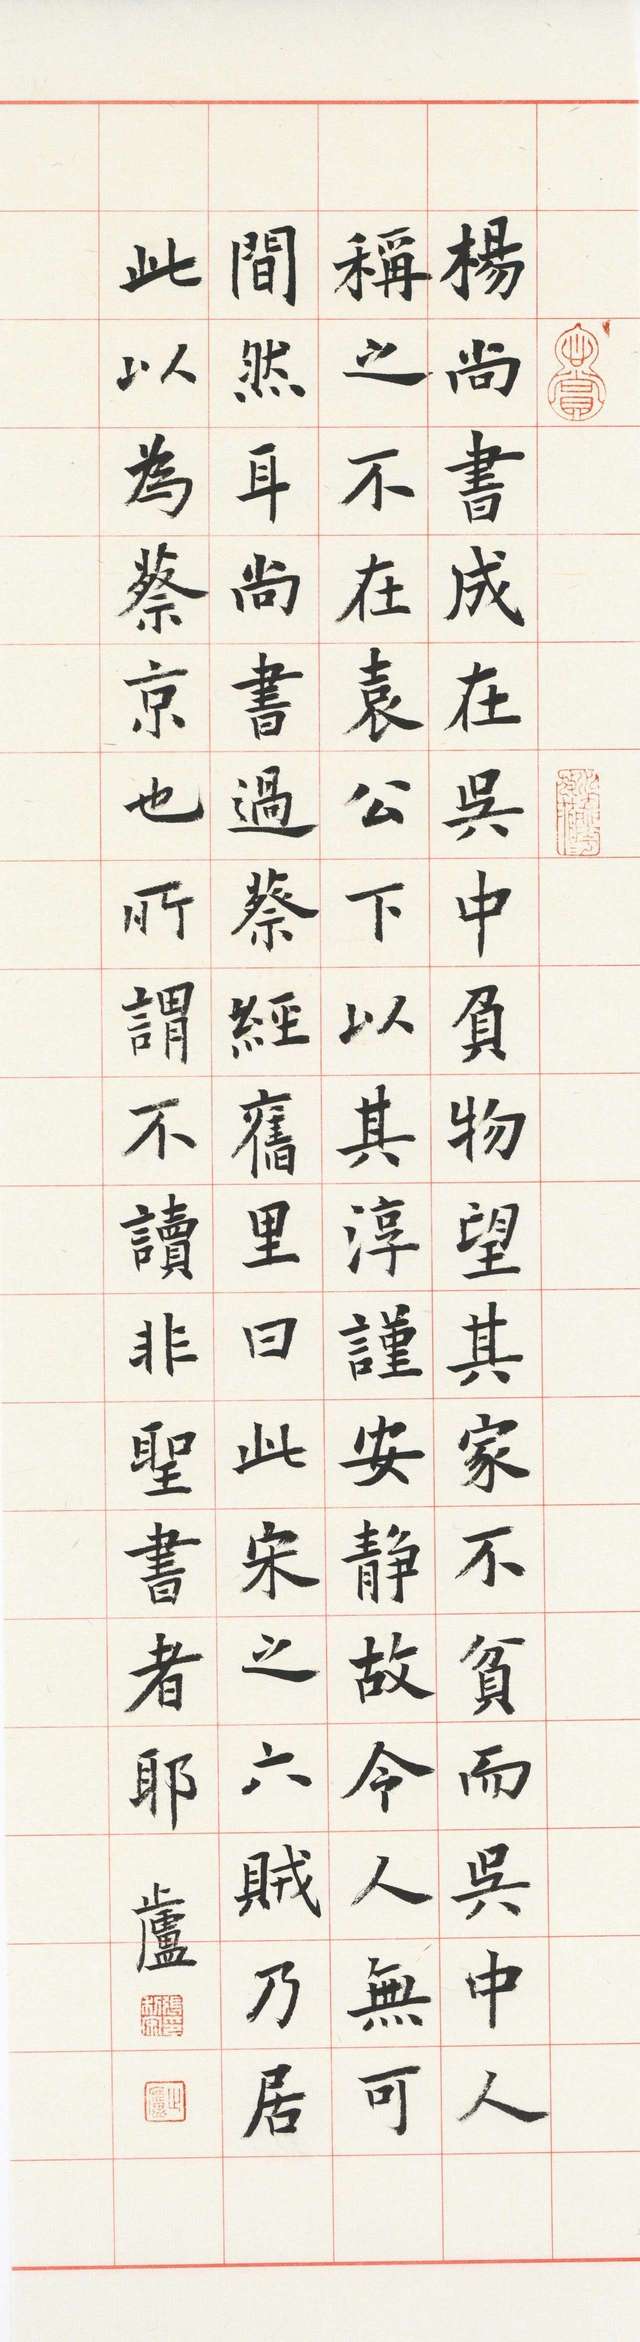 楊尚書成在吳中負物望其家不貧而吳中人
稱之不在袁公下以其淳謹安靜故令人無可
間然耳尚書過蔡經舊里曰此宋之六賊乃居
此以為蔡京也所謂不讀非聖書者耶
止廬